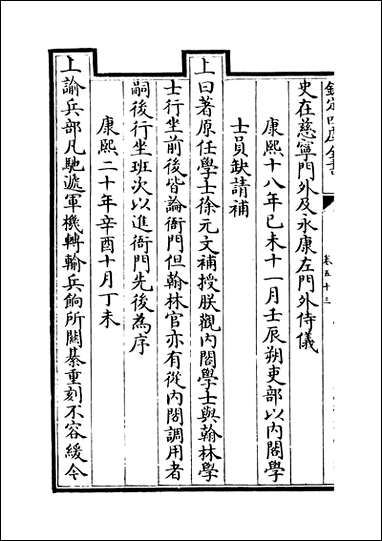 欽定四庫全書
卷五十三
史在慈寧門外及永康左門外侍儀
康熙十八年己未十一月壬辰朔吏部以内閣學
士員缺請補
上曰著原任學士徐元文補授朕觀内閣學士與翰林學
士行坐前後皆論衙門但翰林官亦有從内閣調用者
嗣後行坐班次以進衙門先後為序
康熙二十年辛酉十月丁未
上諭兵部凡馳遞軍機轉輸兵餉所關綦重刻不容緩今